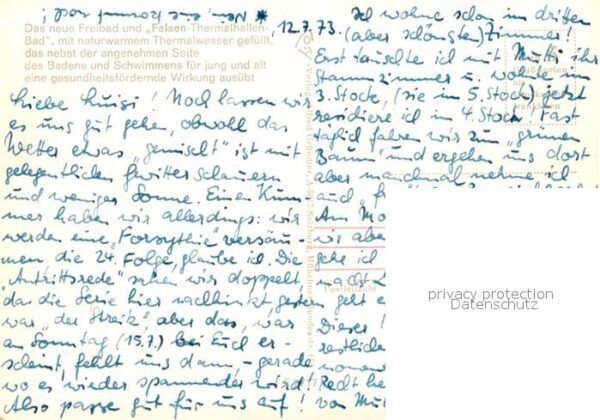 * Nein, eine kommt noch!
12.7.73.
Das neue Freibad und „Felsen-Thermalhallen-
Bad", mit naturwarmem Thermalwasser gefüllt,
das nebst der angenehmen Seite
des Badens und Schwimmens für jung und alt
eine gesundheitsfördernde Wirkung ausübt
Liebe Luigi! Noch lassen wir
es uns gut gehen, obwohl das
Wetter etwas „gemischt" ist mit
gelegentlichen Gewitterschauern
und weniger Sonne. Einen Kum-
mer haben wir allerdings: wir
werden eine „Forsythie" versäu-
men die 24. Folge, glaube ich. Die
„Antrittsrede" sehen wir doppelt,
da die Serie hier nachhinkt, gestern
war „der Streik", aber das, was
am Sonntag (15.7.) bei Euch er-
scheint, fehlt uns dann, – gerade
wo es wieder spannender wird!
Also passe gut für uns auf!
Ich wohne schon im dritten
(aber schönsten) Zimmer!
Erst tauschte ich mit Mutti ihr
Stammzimmer u. wohnte im
3. Stock, (sie im 5. Stock) jetzt
residiere ich im 4. Stock! Fast
täglich fahren wir zum „grünen
Baum" und ergehen uns dort
aber manchmal nehme ich
auch
Am Mo
wir aber
gehe ich
machst
geht e
Dieser
restliche
Recht he
von Mu
Postleitzahl
privacy protection
Datenschutz